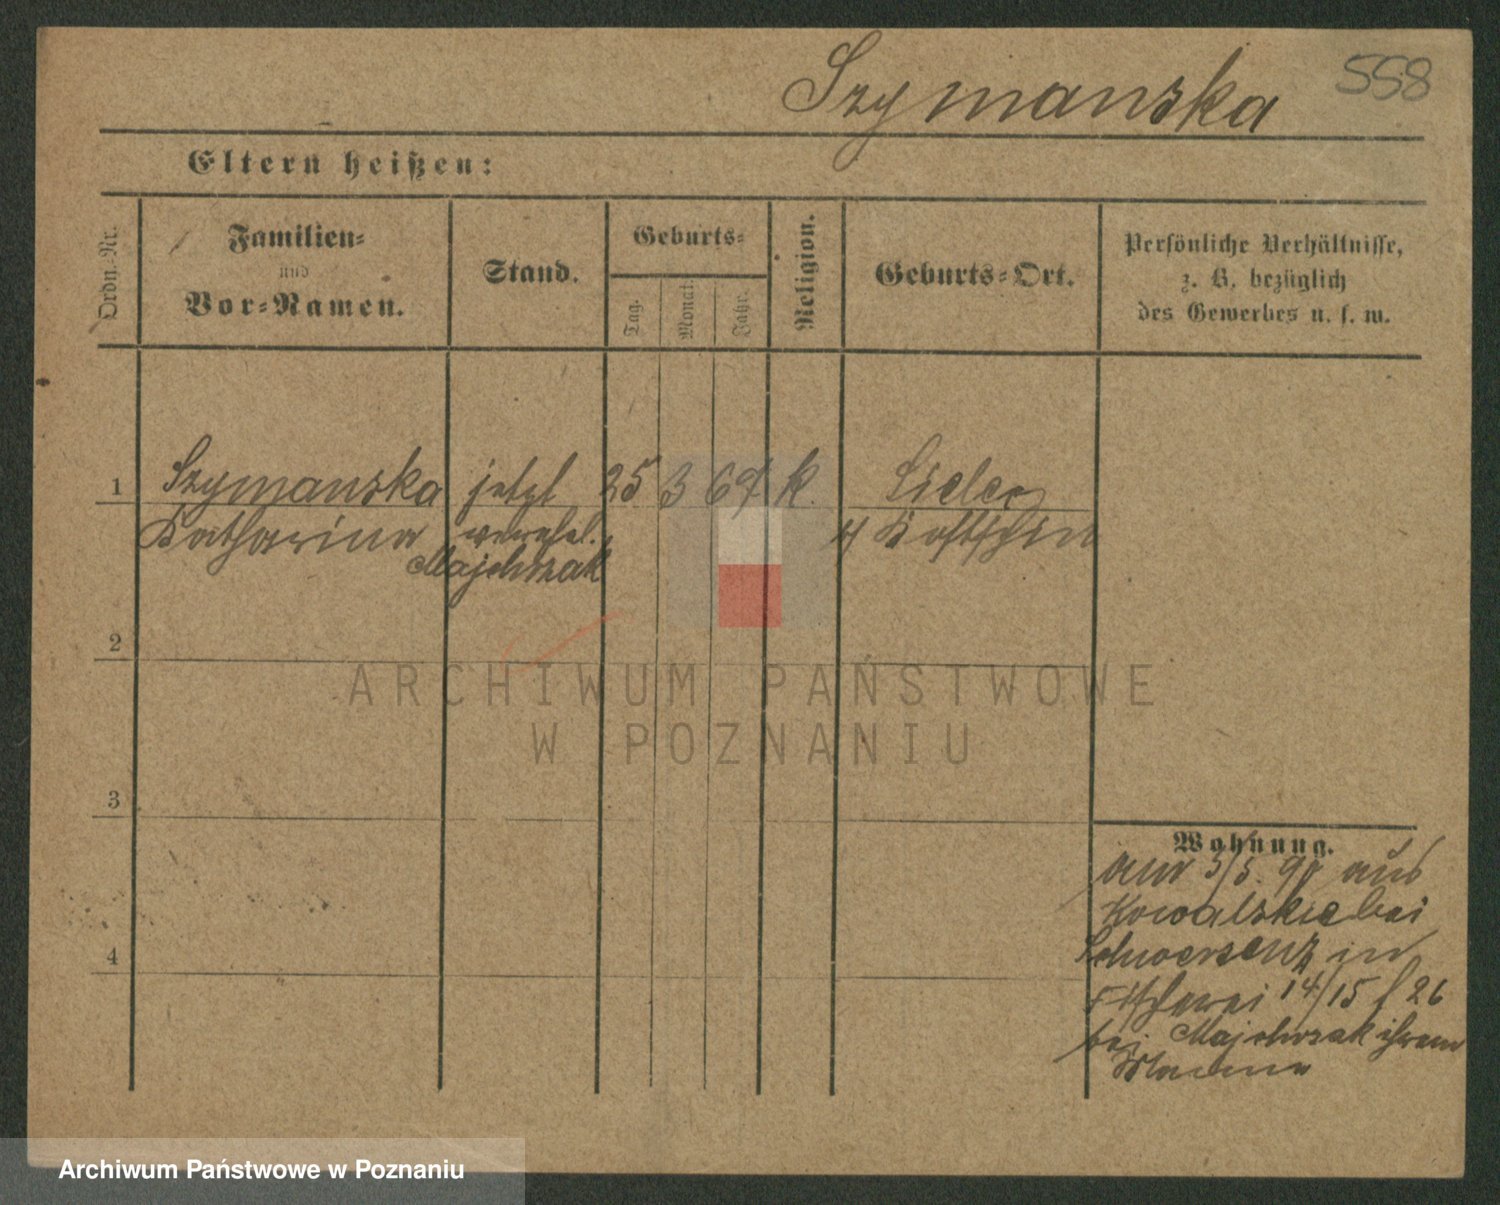 Szymanska
558
Eltern heißen:
Ordn.-Nr.
Familien-
und
Vor-Namen.
Stand.
Geburts-
Tag.
Monat.
Jahr.
Religion.
Geburts-Ort.
Persönliche Verhältnisse,
z. B. bezüglich
des Gewerbes u. s. w.
1
Szymanska jetzt 25 3 67 k. Sielec
Katharina verehel. Kostschin
Majchrzak
2
3
4
Wohnung.
am 5/5. 90 aus
Kowalskie bei
Schwersenz in
Fischerei 14/15 26
bei Majchrzak ihrem
Manne
ARCHIWUM PAŃSTWOWE
W POZNANIU
Archiwum Państwowe w Poznaniu